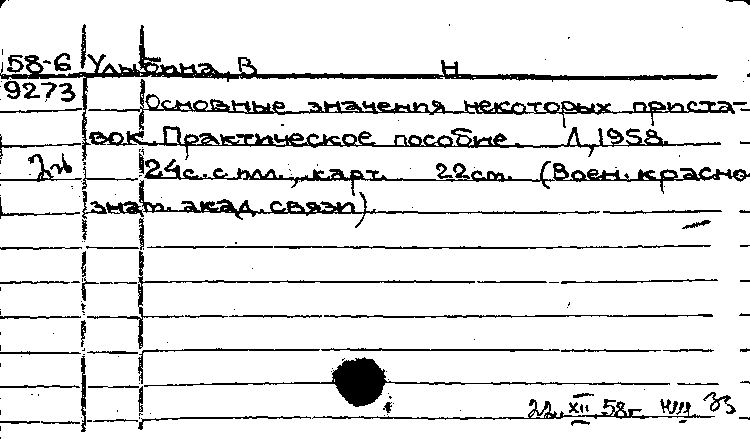 58-6 Улыбина, В Н
9273
Основные значения некоторых приста-
вок. Практическое пособие. Л, 1958.
24с. с илл., карт. 22см. (Воен. красно-
знам. акад. связи)
22.XII.58г.